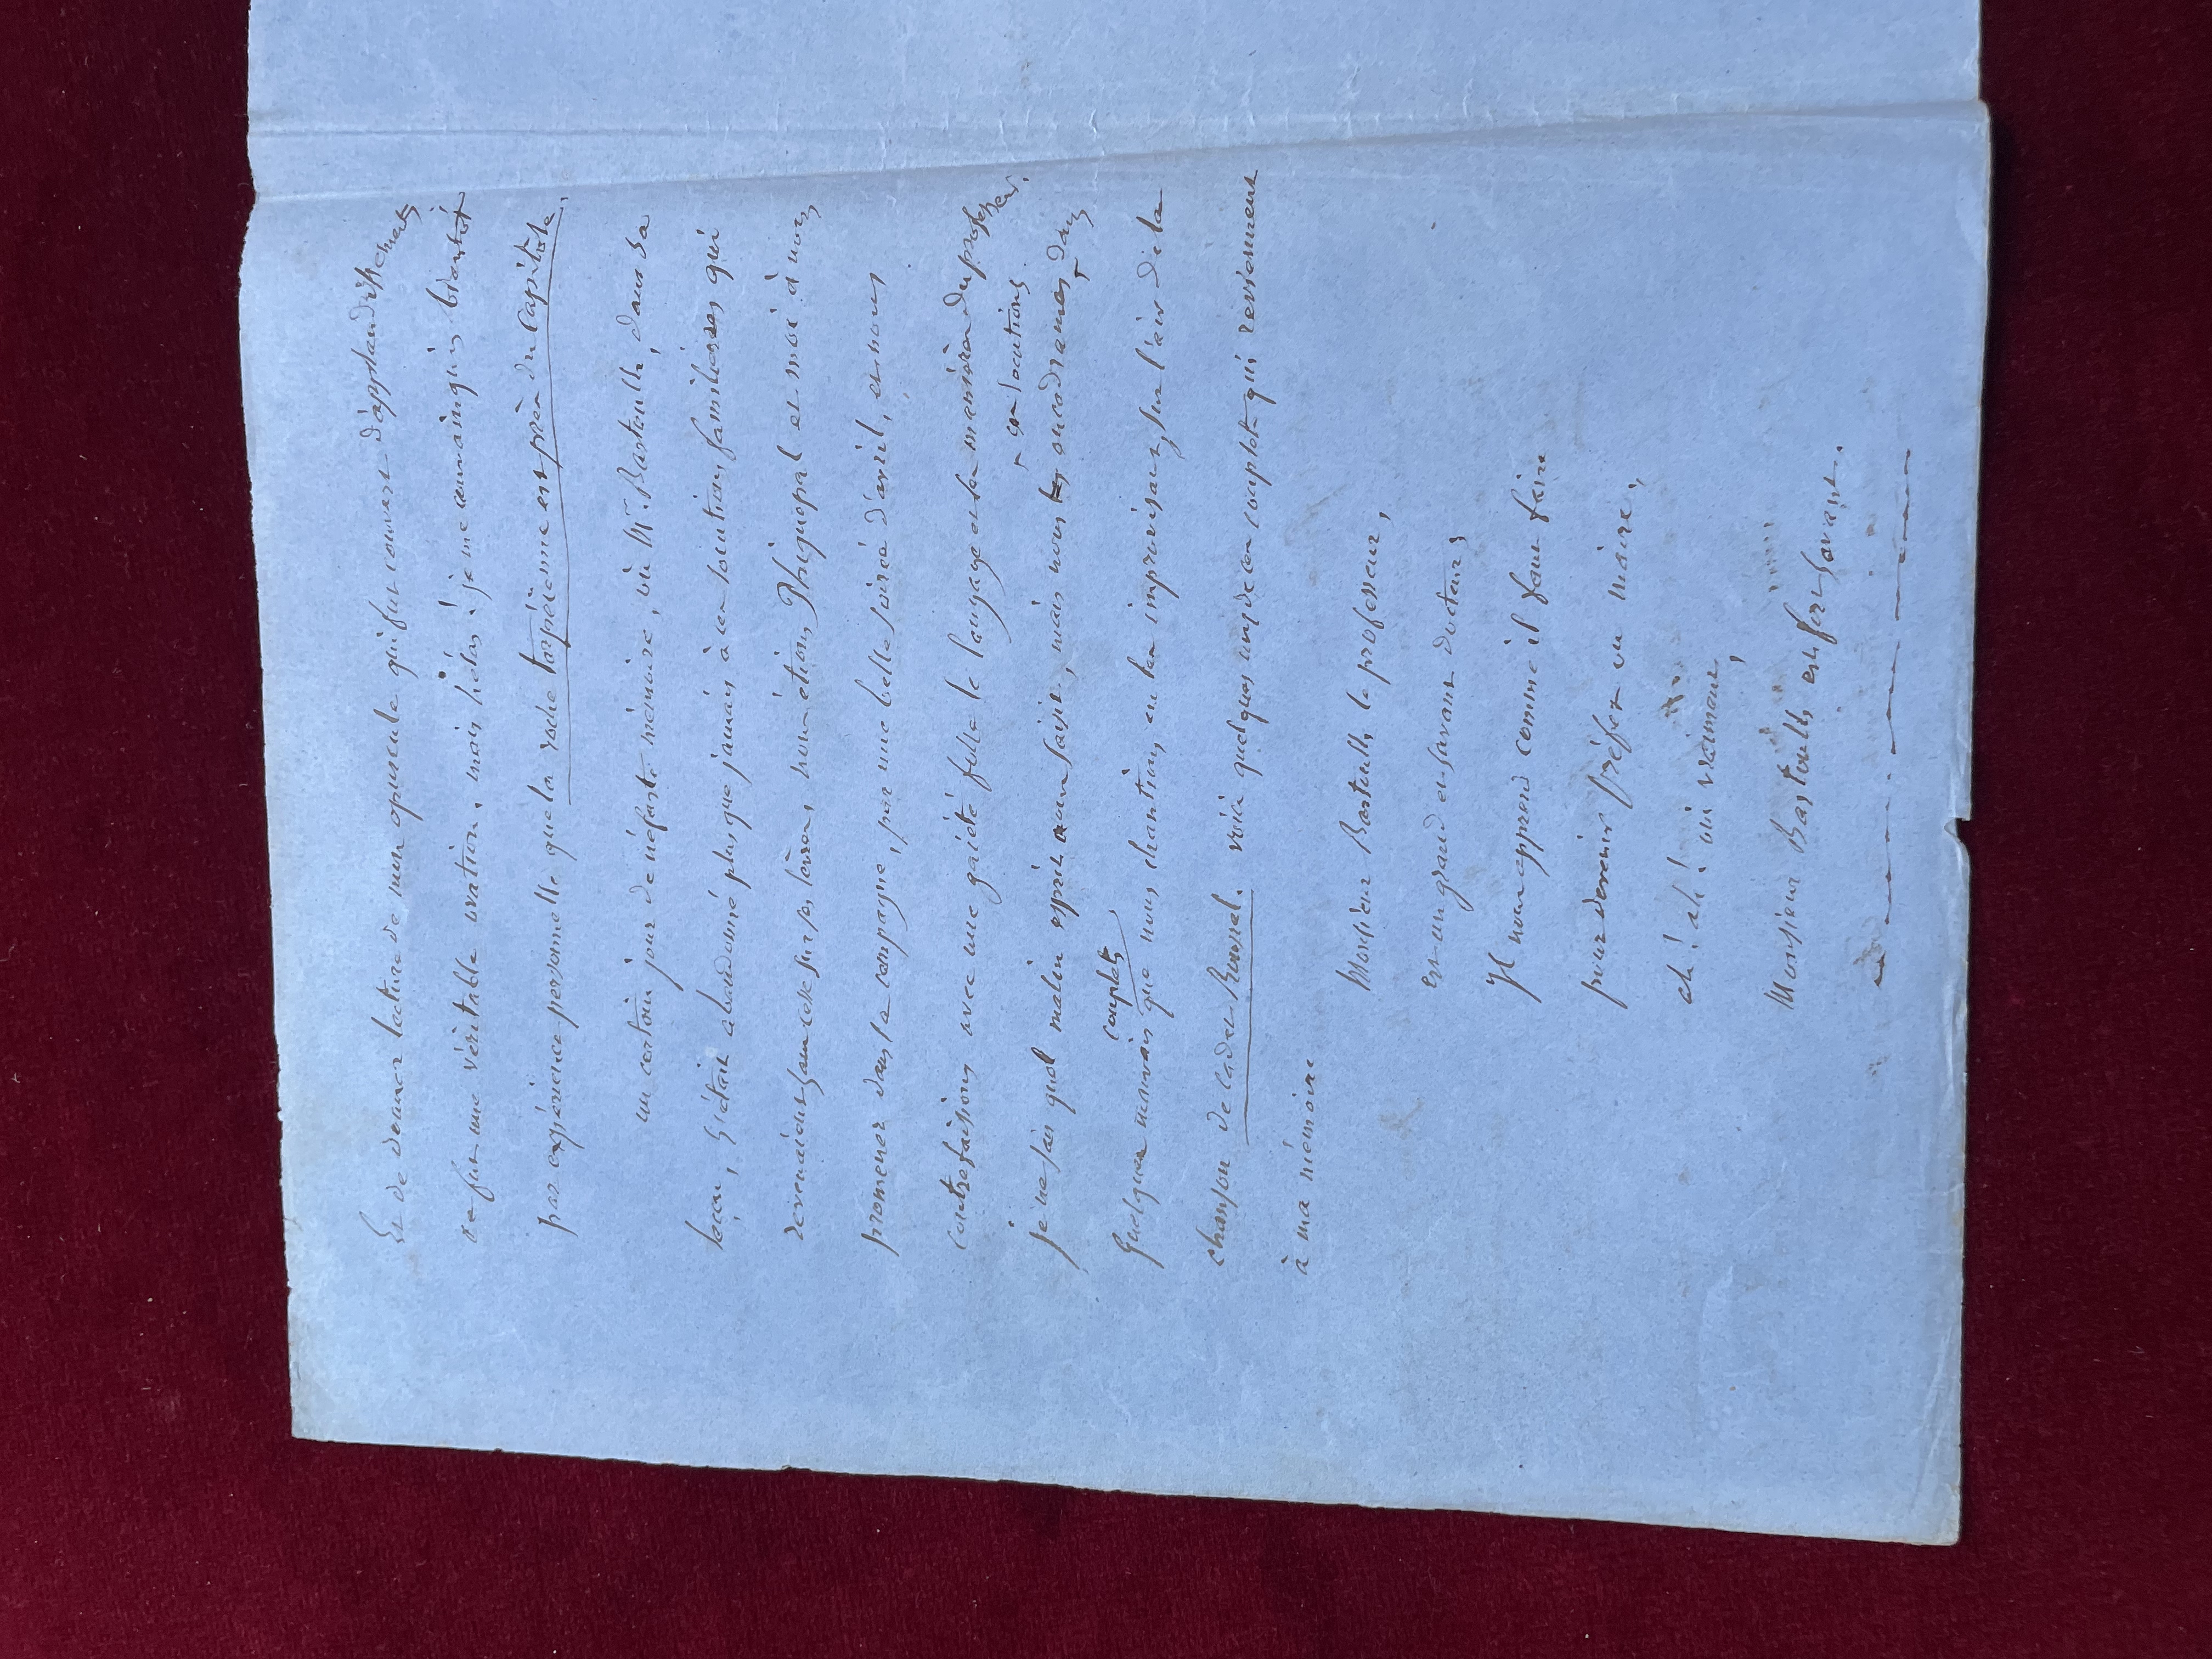 et de donner lecture de mon opuscule qui fut couvert d'applaudissements
ce fut une véritable ovation. mais hélas! je me convainquis bientôt
par expérience personnelle que la roche tarpéienne est près du Capitole.
un certain jour de néfaste mémoire, où Mr. Bastoulh, dans sa
leçon, s'était abandonné plus que jamais à ces locutions familières qui
revenaient sans cesse sur ses lèvres, nous étions Phiquepal et moi à nous
promener dans la campagne, par une belle soirée d'avril, et nous
contrefaisions avec une gaieté folle le langage et la manière du professeur.
ces locutions
je ne sais quel malin esprit nous saisit, mais nous encadrames dans
couplets
quelques mauvais que nous chantions en les improvisant sur l'air de la
chanson de Cadet Roussel. voici quelques uns de ces couplets qui reviennent
à ma mémoire
Monsieur Bastoulh le professeur,
est un grand et savant docteur
Il nous apprend comme il faut faire
pour devenir préfet ou maire,
ah! ah! oui vraiment,
Monsieur Bastoulh est fort savant.